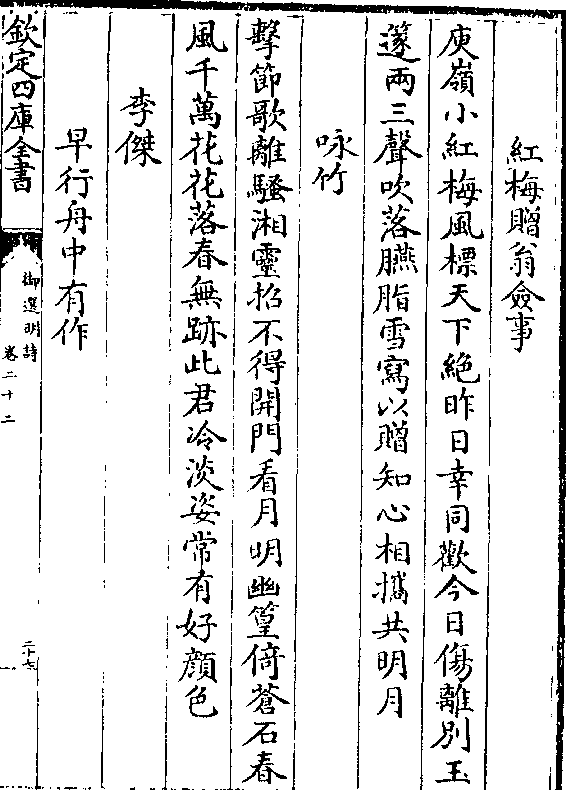 紅梅贈翁僉事
庾嶺小紅梅風標天下絶昨日幸同歡今日傷離別玉
篴兩三聲吹落臙脂雪寫以贈知心相攜共明月
咏竹
擊節歌離騷湘靈招不得開門看月明幽篁倚蒼石春
風千萬花花落春無跡此君冷淡姿常有好顔色
李傑
早行舟中有作
欽定四庫全書
御選明詩
卷二十二
二十七